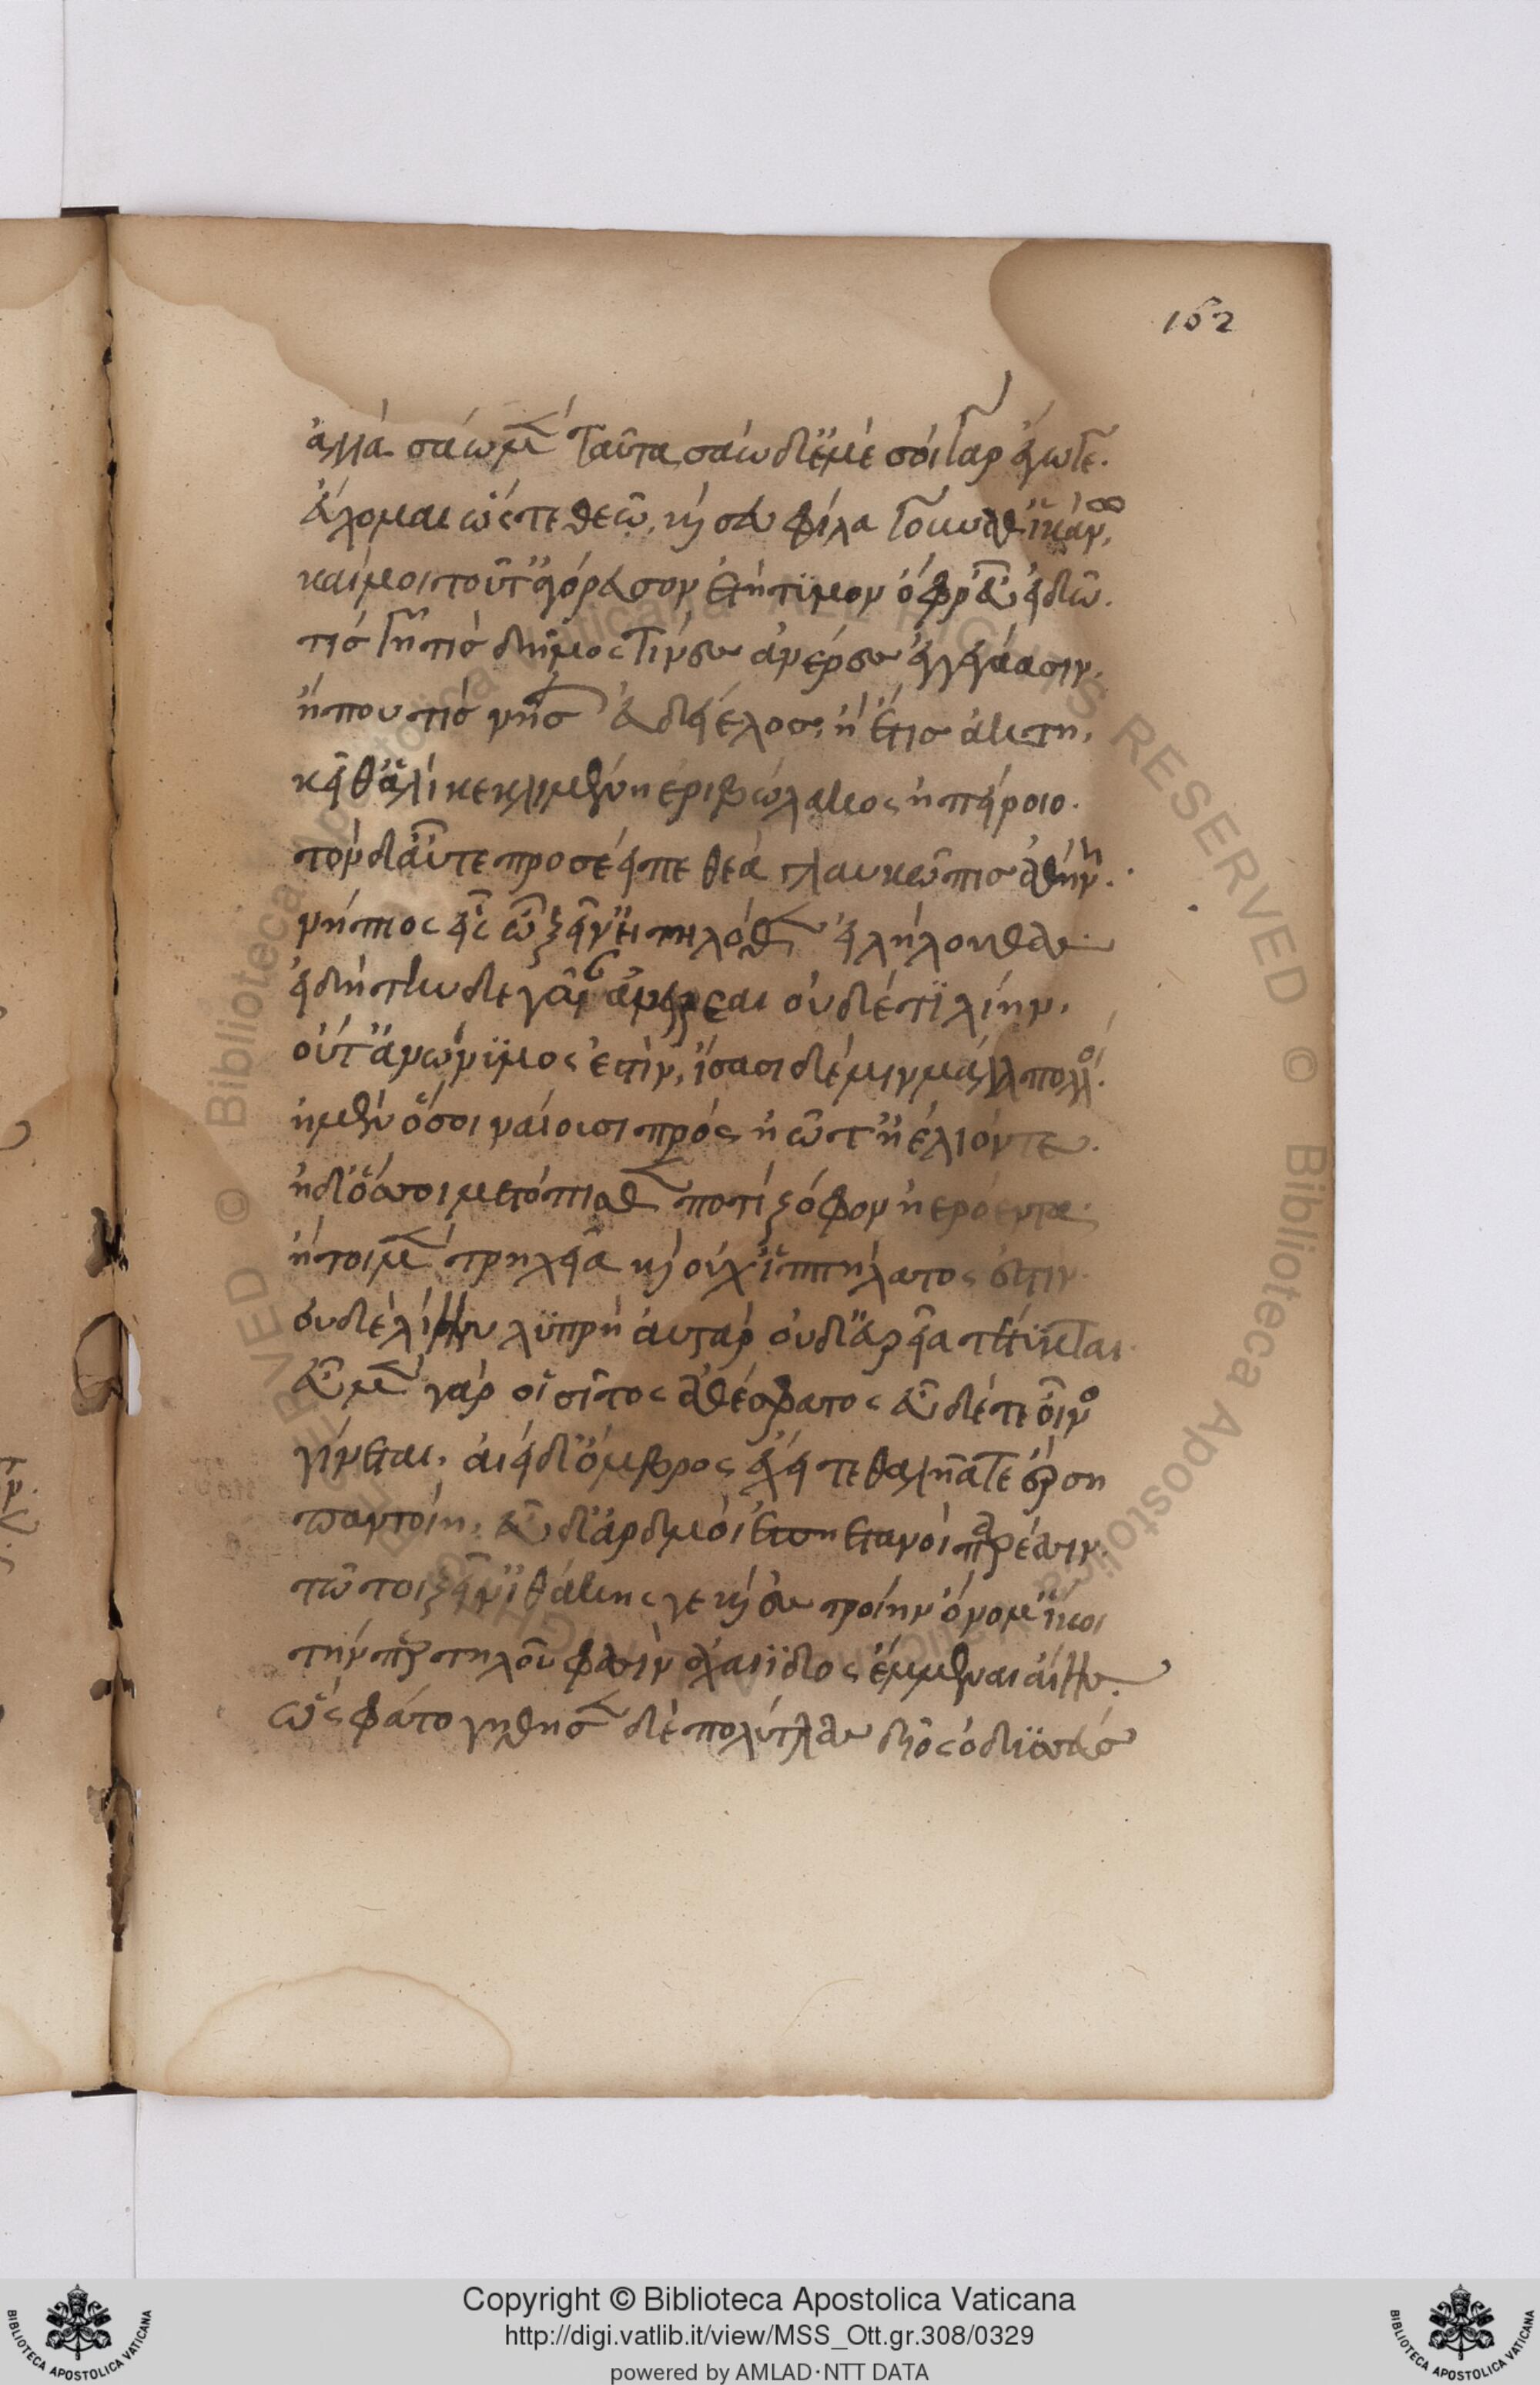 152
ἀλλὰ σάω μὲν ταῦτα σάω δ' ἐμέ σοὶ γὰρ ἔγωγε.
εὔχομαι ὥς τε θεῶ, καὶ σευ φίλα γούναθ' ἱκάνω,
καί μοι τοῦτ' ἀγόρευσον ἐτήτυμον ὄφρ' εὖ εἰδῶ.
τίς γῆ τίς δῆμος τίνες ἀνέρες ἐγγεγάασιν.
ἤ που τίς νήσων εὐδείελος, ἠέ τις ἀκτὴ,
κεῖθ' ἁλὶ κεκλιμένη ἐριβώλακος ἠπείροιο.
τὸν δ' αὖτε προσέειπε θεὰ γλαυκῶπις ἀθήνη.
νήπιος εἶς ὦ ξεῖν' ἢ τηλόθεν εἰλήλουθας
εἰ δὴ τήνδε γαῖαν ἀνείρεαι οὐδέ τι λίην.
οὔτ' ἀνώνυμος ἐστίν, ἴσασι δέ μιν μάλα πολλοί.
ἠμὲν ὅσοι ναίουσι πρὸς ἠῶτ' ἠέλιόντε.
ἠδ' ὅσσοι μετόπισθεν ποτὶ ζόφον ἠερόεντα.
ἤτοι μὲν τρηχεῖα καὶ οὐχ ἱππήλατος ἐστιν.
οὐδὲ λίην λυπρὴ ἀυτὰρ οὐδ' εὐρεῖα τέτυκται.
ἐν μὲν γάρ οἱ σῖτος ἀθέσφατος ἐν δέ τε οἶνος
γίνεται, ἀιεὶ δ' ὄμβρος ἔχει τεθαλυῖά τε ἐέρση
παντοίη, ἐν δ' ἀρδμοὶ ἐπηετανοὶ παρέασιν.
τῶ τοι ξεῖν' ἰθάκης γε καὶ ἐς τροίην ὄνομ' ἵκει
τήν περ τηλοῦ φασὶν ἀχαιΐδος ἔμμεναι αἴης.
ὣς φάτο γήθησεν δὲ πολύτλας δῖος ὀδυσσεύς
Copyright © Biblioteca Apostolica Vaticana
http://digi.vatlib.it/view/MSS_Ott.gr.308/0329
powered by AMLAD·NTT DATA